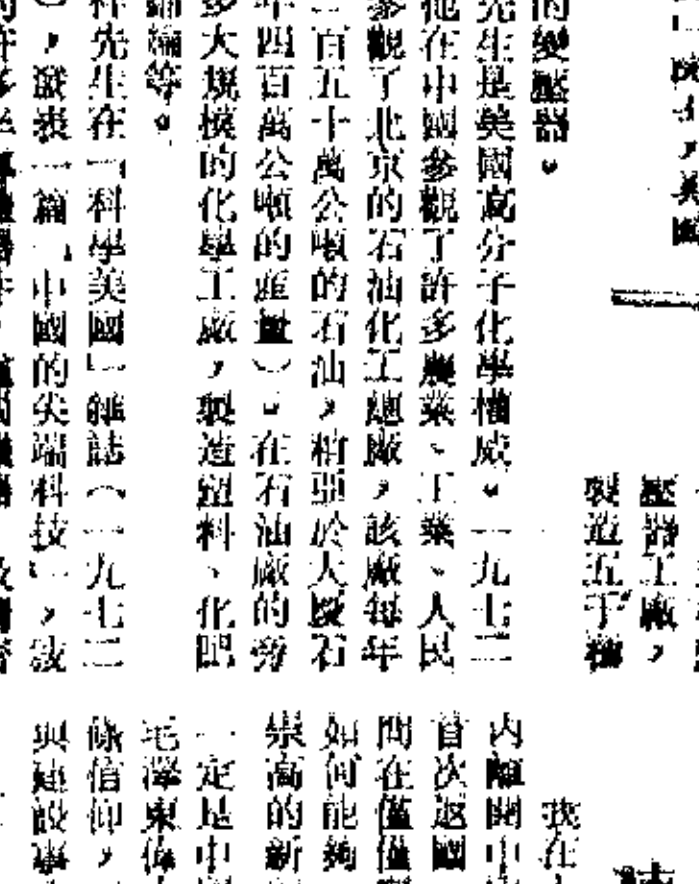 院士，美國
壓器工廠，
製造五千種
的變壓器。
先生是美國高分子化學權威。一九七二
他在中國參觀了許多農業、工業、人民
參觀了北京的石油化工總廠，該廠每年
二百五十萬公噸的石油，稍亞於大慶石
年四百萬公噸的產量）。在石油廠的旁
多大規模的化學工廠，製造塑料、化肥
綸等。
科先生在「科學美國」雜誌（一九七二
），發表一篇「中國的尖端科技」，波
的許多
我在
內離開中
首次返國
間在僅僅
如何能夠
崇高的新
一定是中
毛澤東偉
條信仰，
與建設事